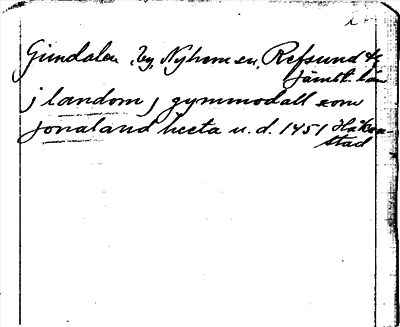 Gimdalen, by, Nyhem sn, Refsund tg
Jämtl. län
j landom j gymmodall som
jonaland heeta u. d. 1451 Håkon
stad